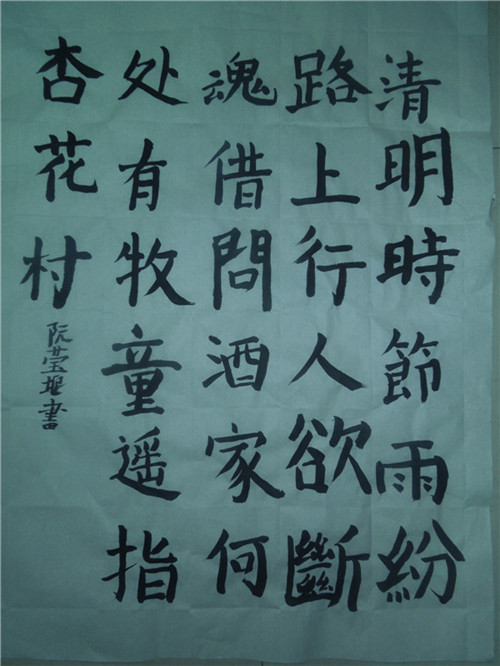 清明時節雨紛
路上行人欲斷
魂借問酒家何
处有牧童遥指
杏花村
阮莹書